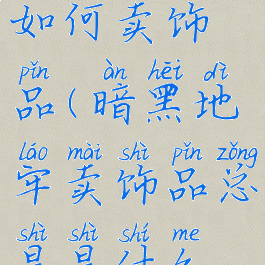 如何卖饰
pǐn àn hēi dì
品(暗黑地
láo mài shì pǐn zǒng
牢卖饰品总
shì shì shí me
是是什么